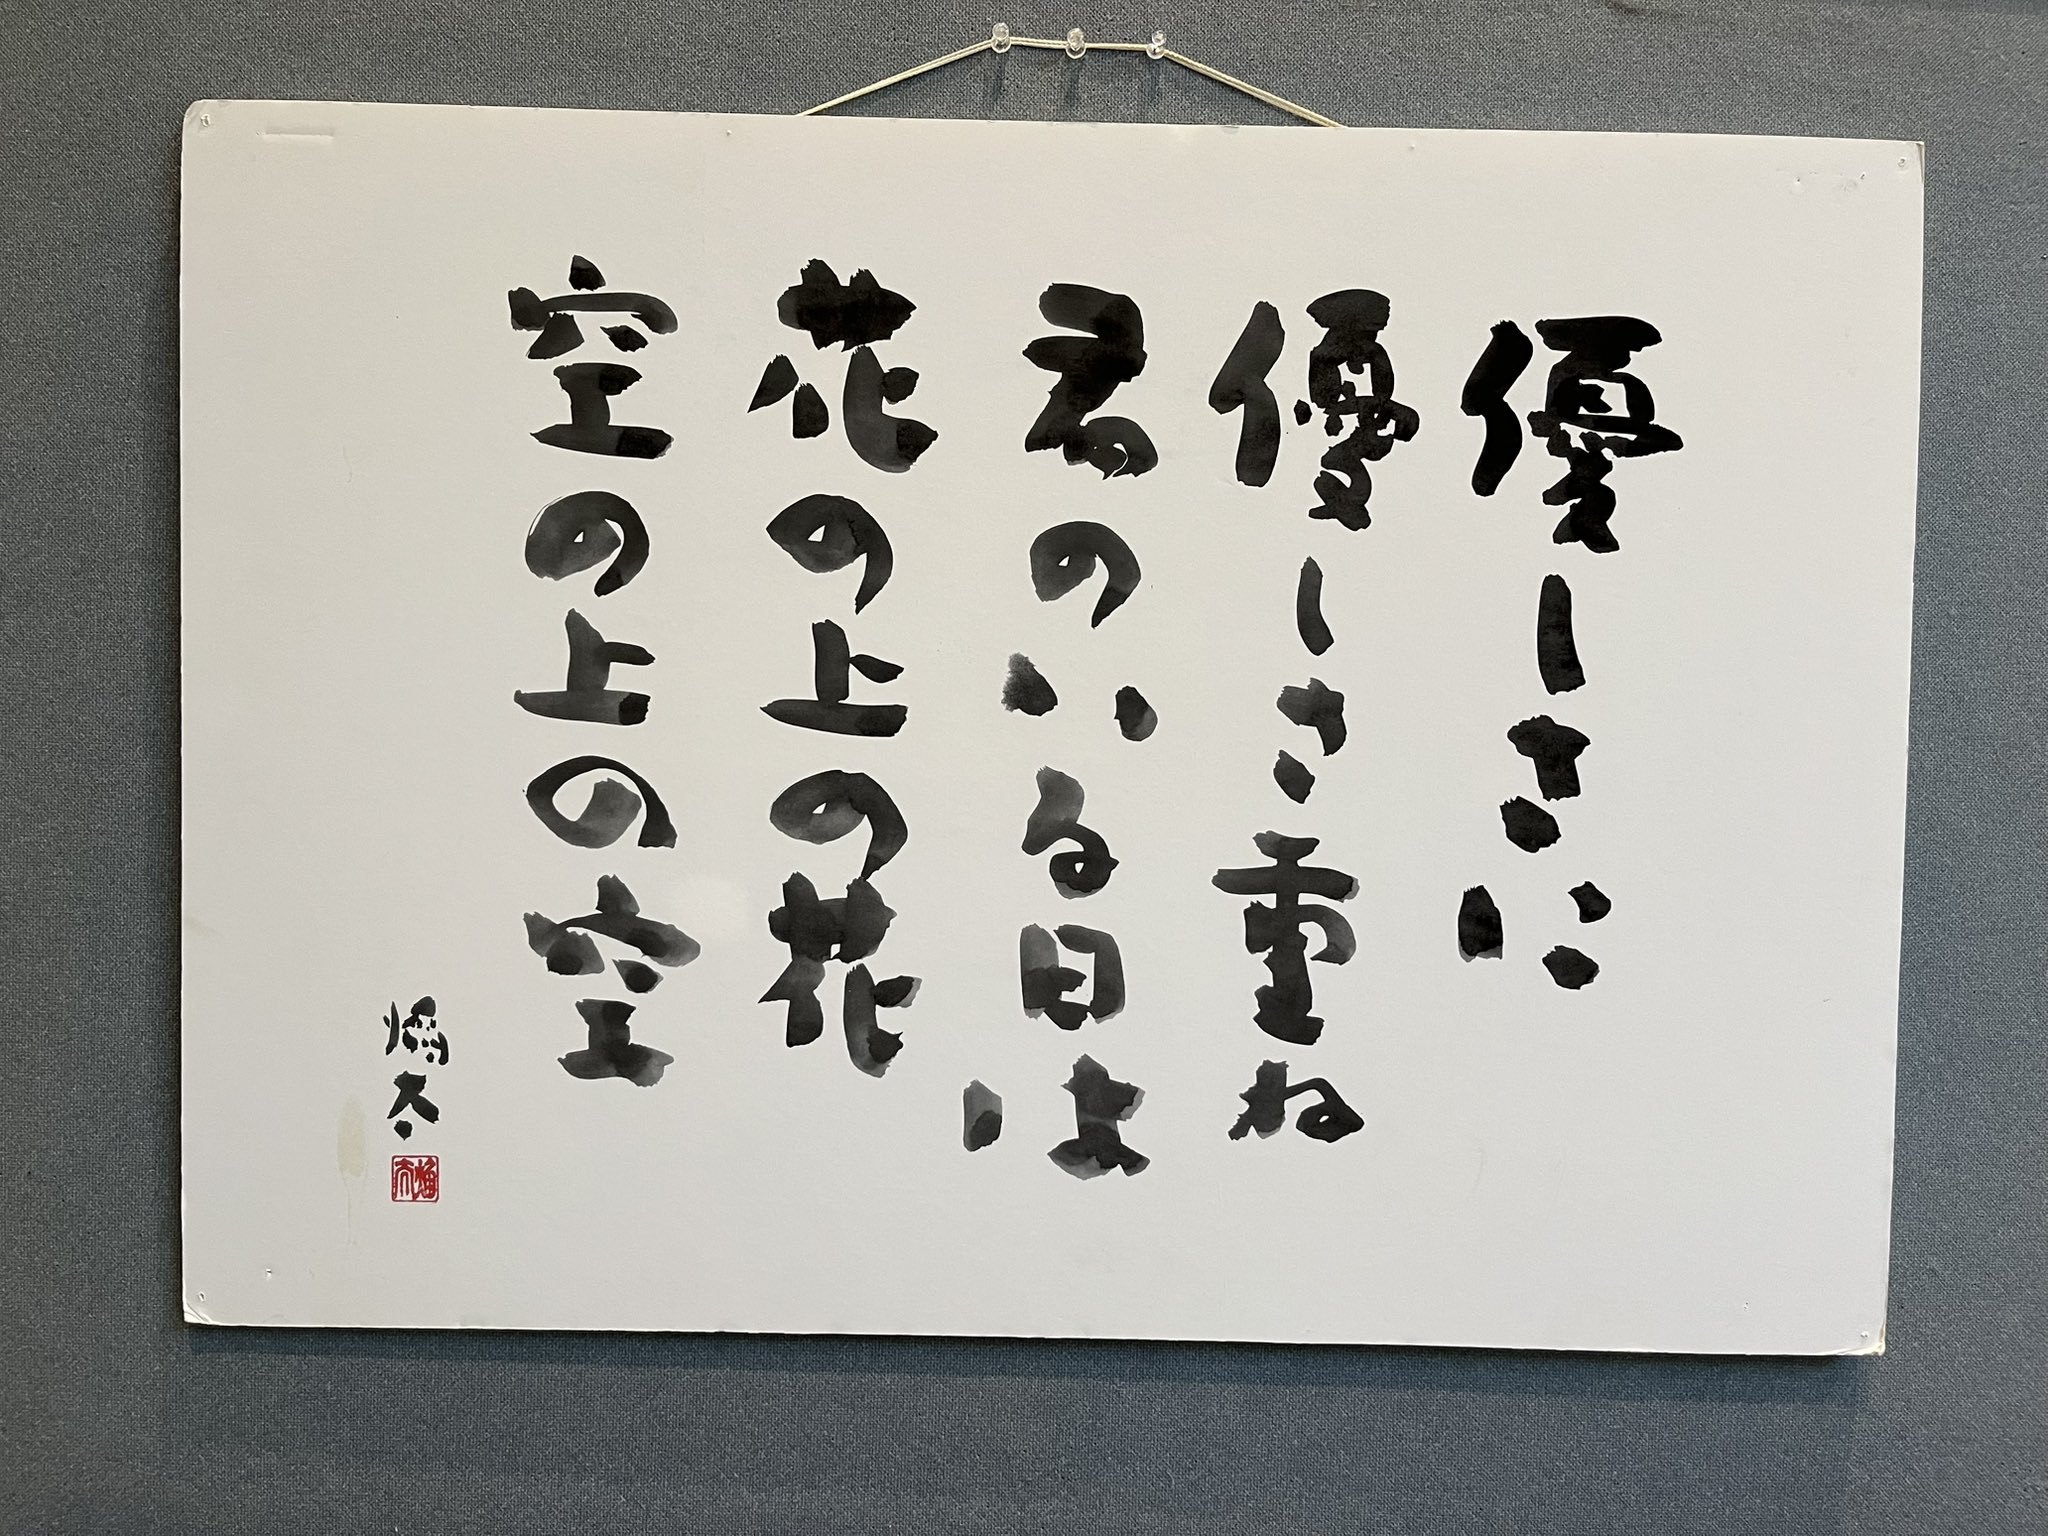 優しさに
優しさ重ね
君のいる日は
花の上の花
空の上の空